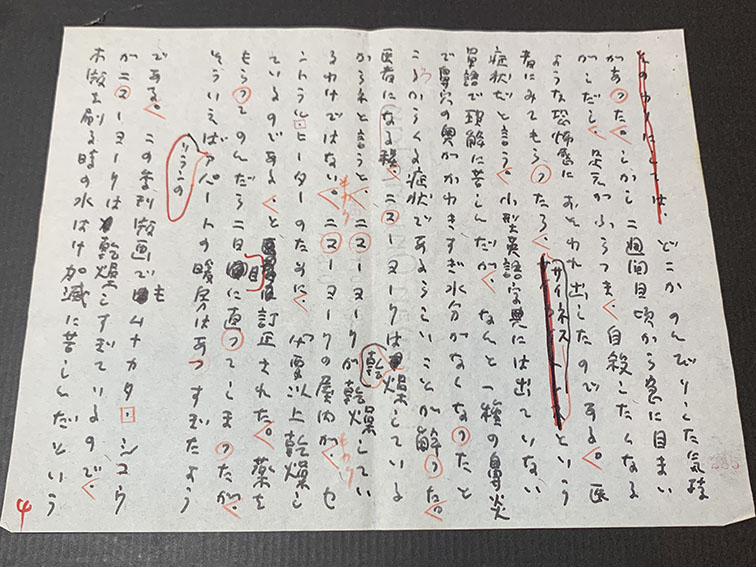 そのわりにしては、どこかのんびりした気持
があった。しかし二週間目頃から急に目まい
がしだし、足元がふらつき、自殺したくなる
ような恐怖感におそわれ出したのである。医
者にみてもらったら、サイネスという
症状だと言う。小型英語字典には出ていない
英語で理解に苦しんだが、なんと一種の鼻炎
で鼻穴の奥がかわきすぎ水分がなくなったと
ころからくる症状であるらしいことが解った。
医者になる程、ニューヨークは乾燥している
からねと言うと、ニューヨークが乾燥してい
るわけではない。ニューヨークの屋内が、セ
ントラル・ヒーターのために、必要以上乾燥し
ているのである、と訂正された。薬を
もらってのんだら二日目に直ってしまったが、
そういえばアパートの暖房はあつすぎたよう
である。この季刊版画でもムナカタ・シコウ
がニューヨークは乾燥しすぎているので、
木版を刷る時の水はけ加減に苦しんだという
4